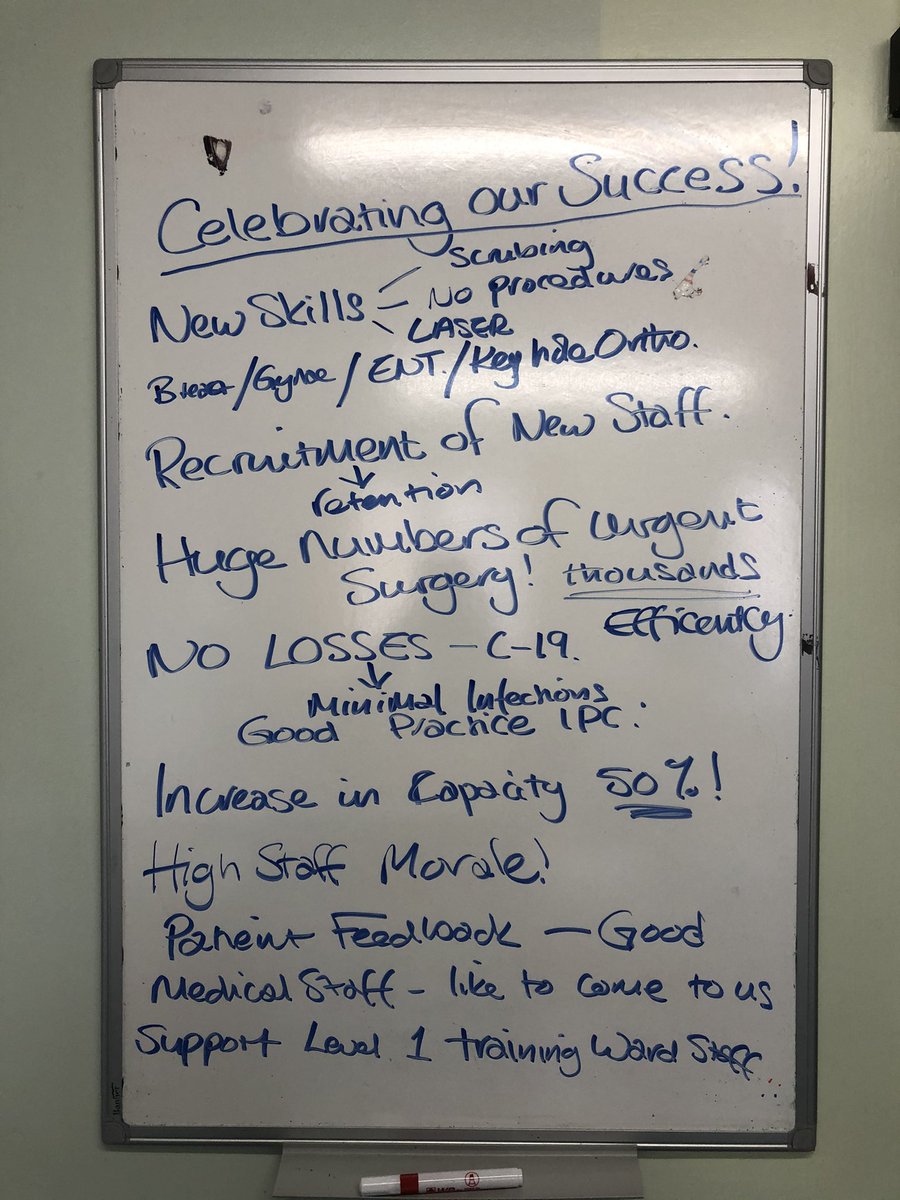 Celebrating our Success!
New Skills
scrubing
No procedures
LASER
Breast/Gynae/ENT./Keyhole Ortho.
Recruitment of New Staff.
retention
Huge numbers of urgent
Surgery! thousands
Efficentcy.
NO LOSSES - C-19.
Minimal Infections
Good Practice IPC.
Increase in Capacity 50%!
High Staff Morale!
Patient Feedback - Good
Medical Staff - like to come to us
Support Level 1 training Ward Staff